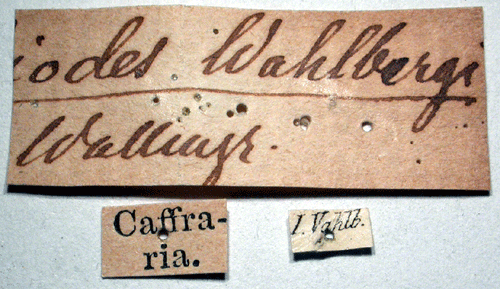 iodes Wahlbergi
Wallengr.
Caffra-
ria.
J. Wahlb.